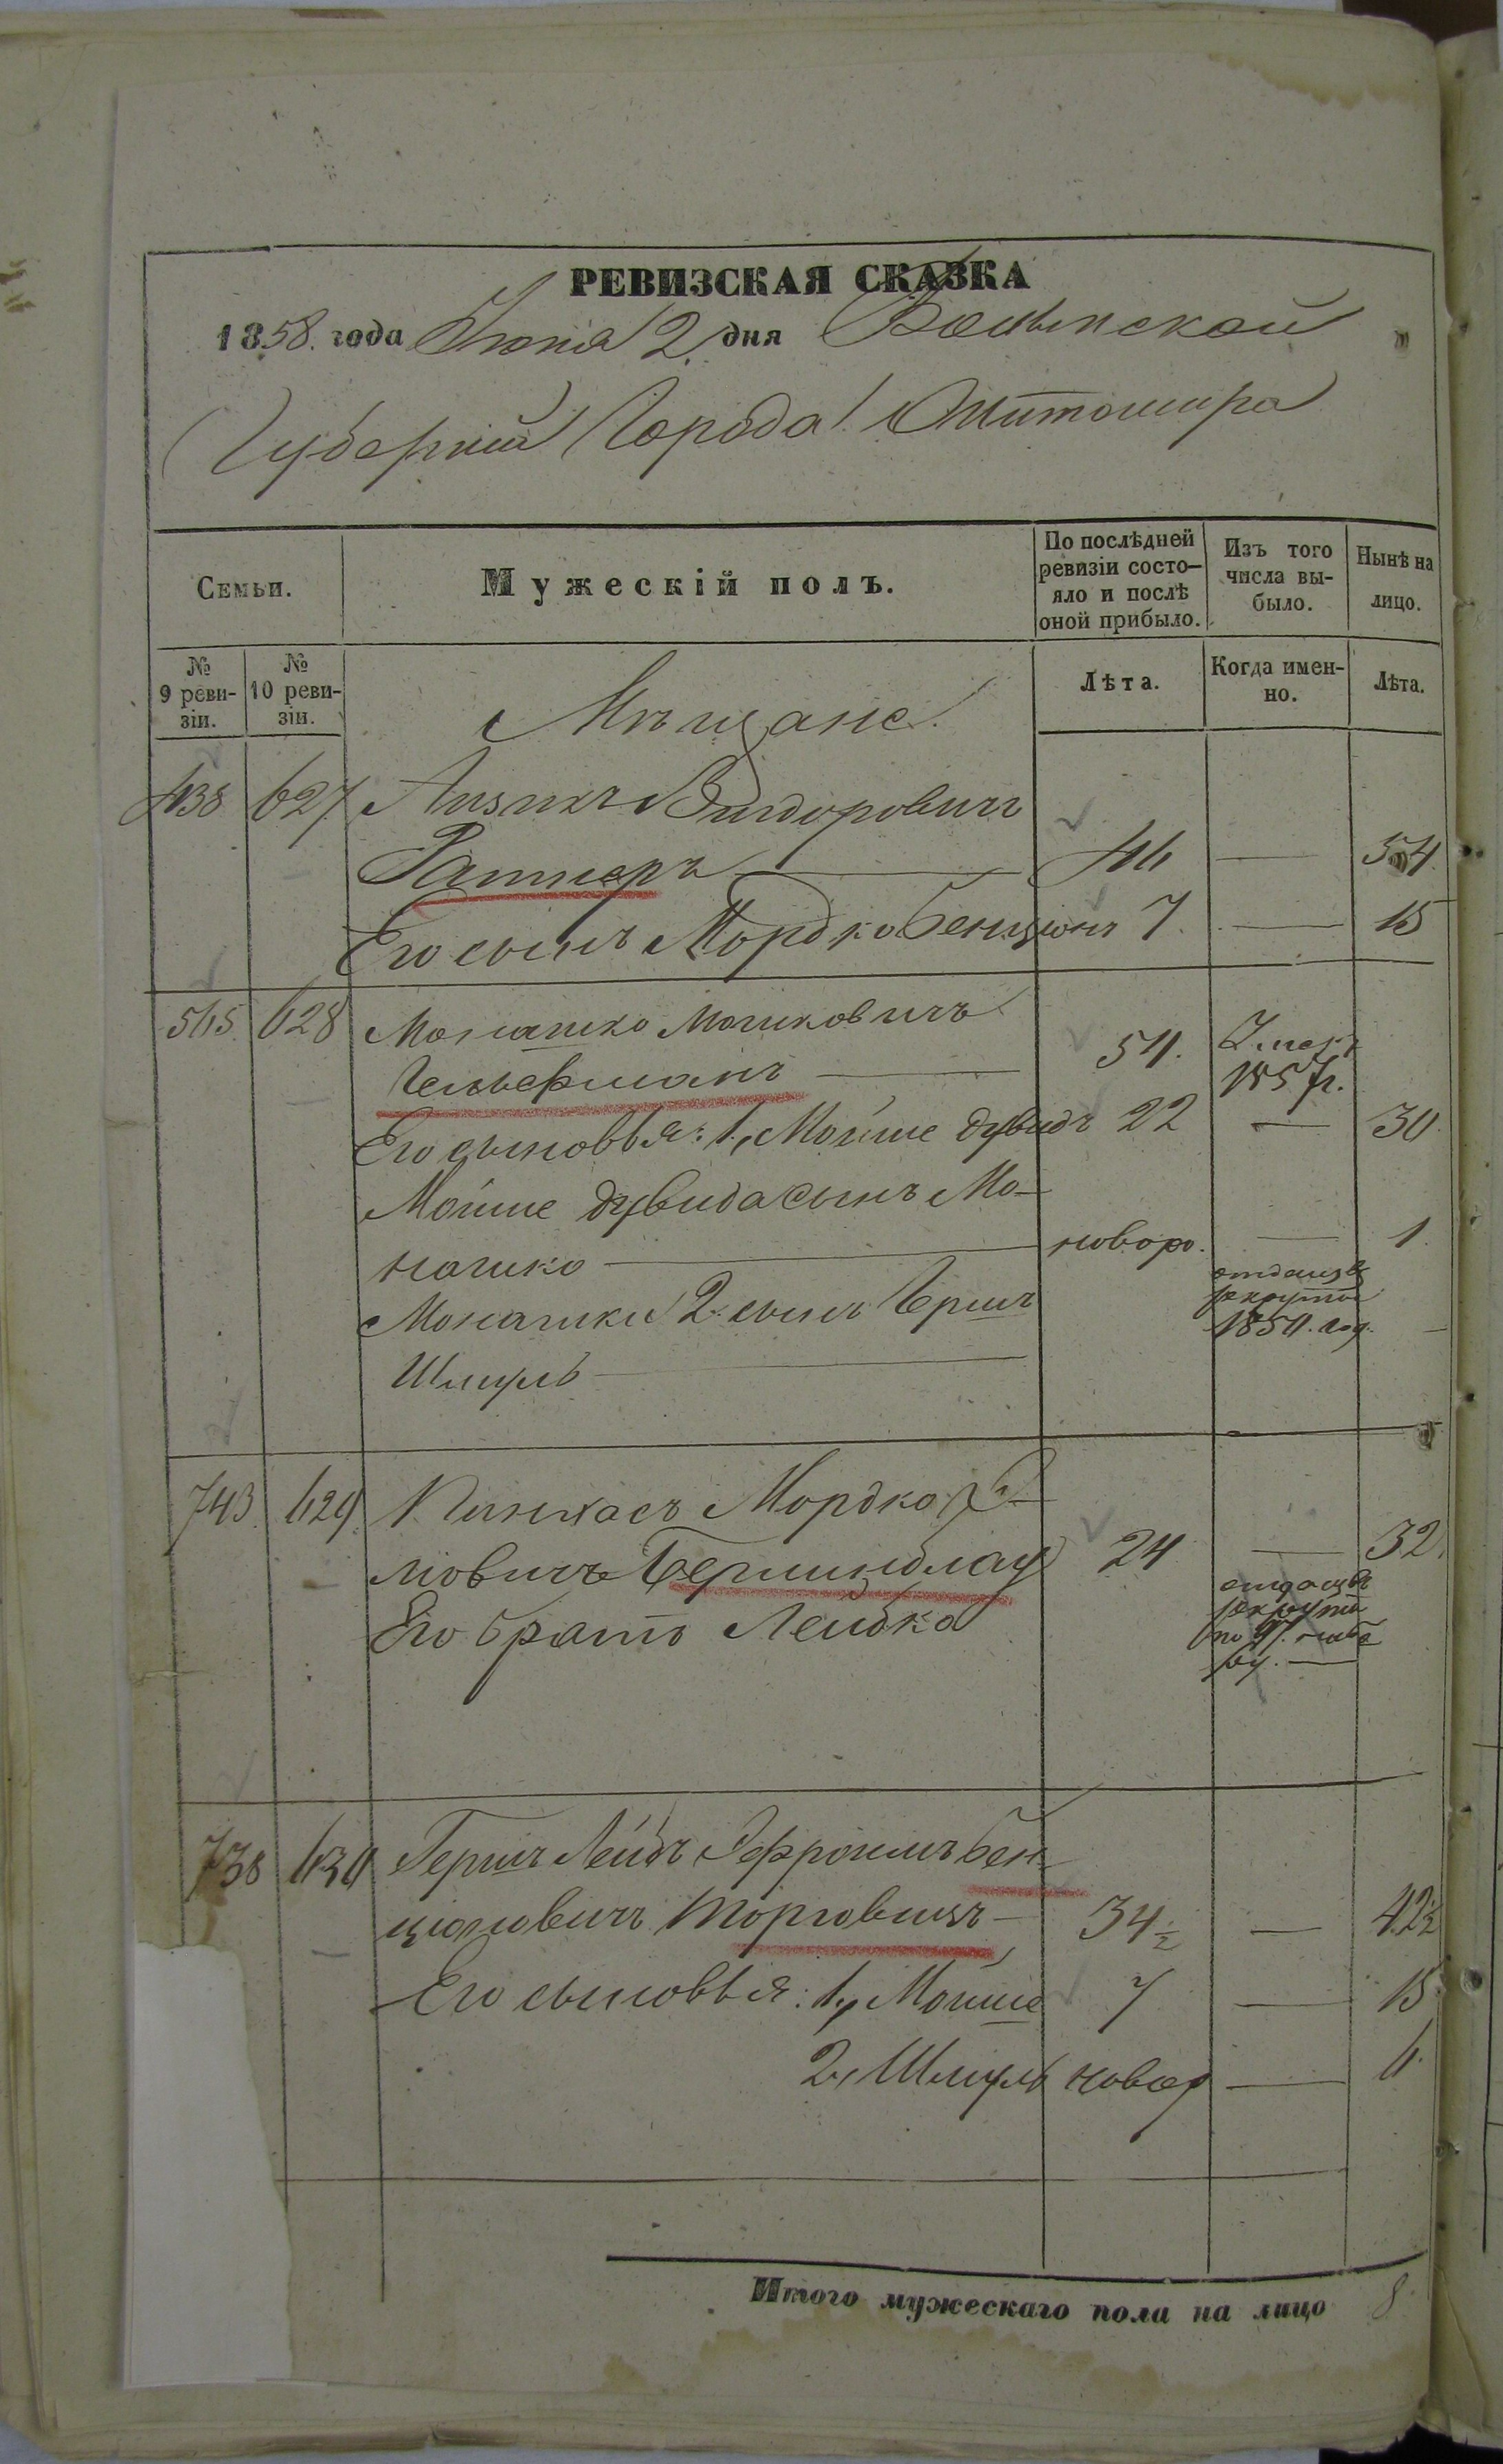 РЕВИЗСКАЯ СКАЗКА
1858. года Июня 2. дня Волынской
Губерніи Города Житомира
Семьи.
Мужескій полъ.
По послѣдней ревизіи состо-
яло и послѣ оной прибыло.
Изъ того числа вы-
было.
Нынѣ на лицо.
№ 9 реви-
зіи.
№ 10 реви-
зіи.
Лѣта.
Когда имен-
но.
Лѣта.
Мѣщане.
438 627 Айзикъ Вигдоровичъ
Ратнеръ 46 — 54
Его сынъ Мордко Бенціонъ 7. — 15
565 628 Монашко Мошковичъ
Гельферманъ 54. 1857 г.
Его сыновья: 1, Мойше Дувидъ 22 — 30
Мойше Дувида сынъ Мо-
нашко новоро. — 1
Монашки 2. сынъ Гершъ
Шмуль отданъ в рекруты 1854. год.
743 629 Пинхасъ Мордко
мовичъ 24 — 32.
Его братъ Лейбко отданъ в рекруты по
738 630 Гершъ Лейбъ Эфроимъ Бен-
ціоновичъ Торговицъ — 34½ — 42½
Его сыновья: 1, Мойше 7 — 15
2, Шмуль новор — 6.
Итого мужескаго пола на лицо 8